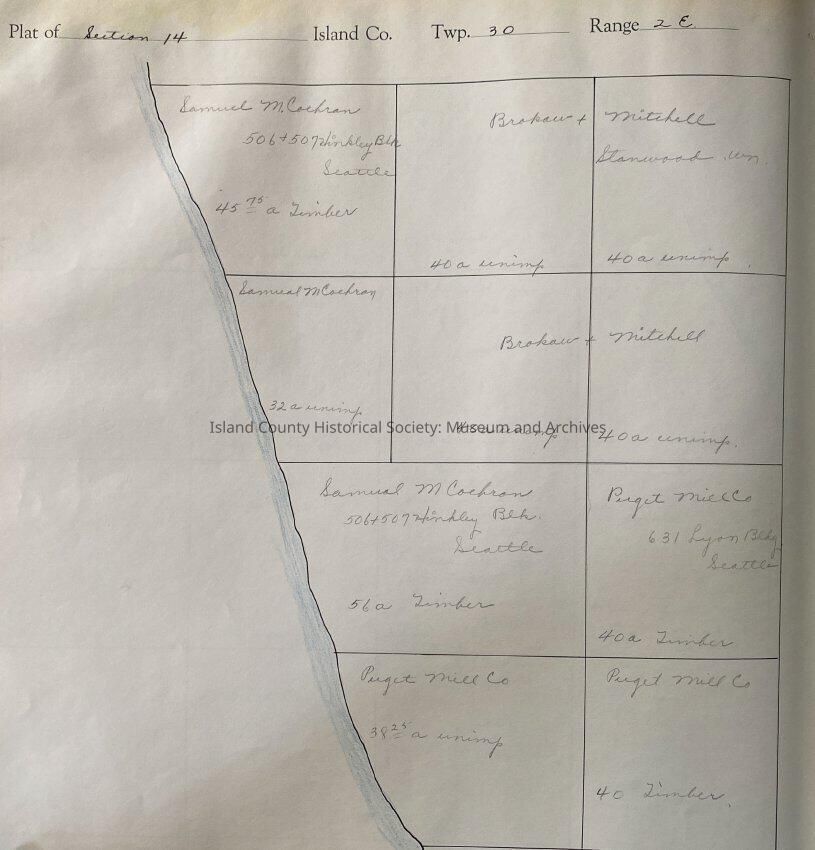 Plat of Section 14 Island Co. Twp. 30 Range 2 E
Samuel M. Cochran
506 + 507 Hinkley Blk
Seattle
45 75 a Timber
Brokaw + Mitchell
Stanwood, Wn.
40 a unimp
40 a unimp
Samual M Cochran
32 a unimp
Brokaw + Mitchell
40 a unimp.
Island County Historical Society: Museum and Archives
Samual M Cochran
506 + 507 Hinkley Blk.
Seattle
56 a Timber
Puget Mill Co
631 Lyon Bldg
Seattle
40 a Timber
Puget Mill Co
38 25 a unimp
Puget Mill Co
40 Timber.